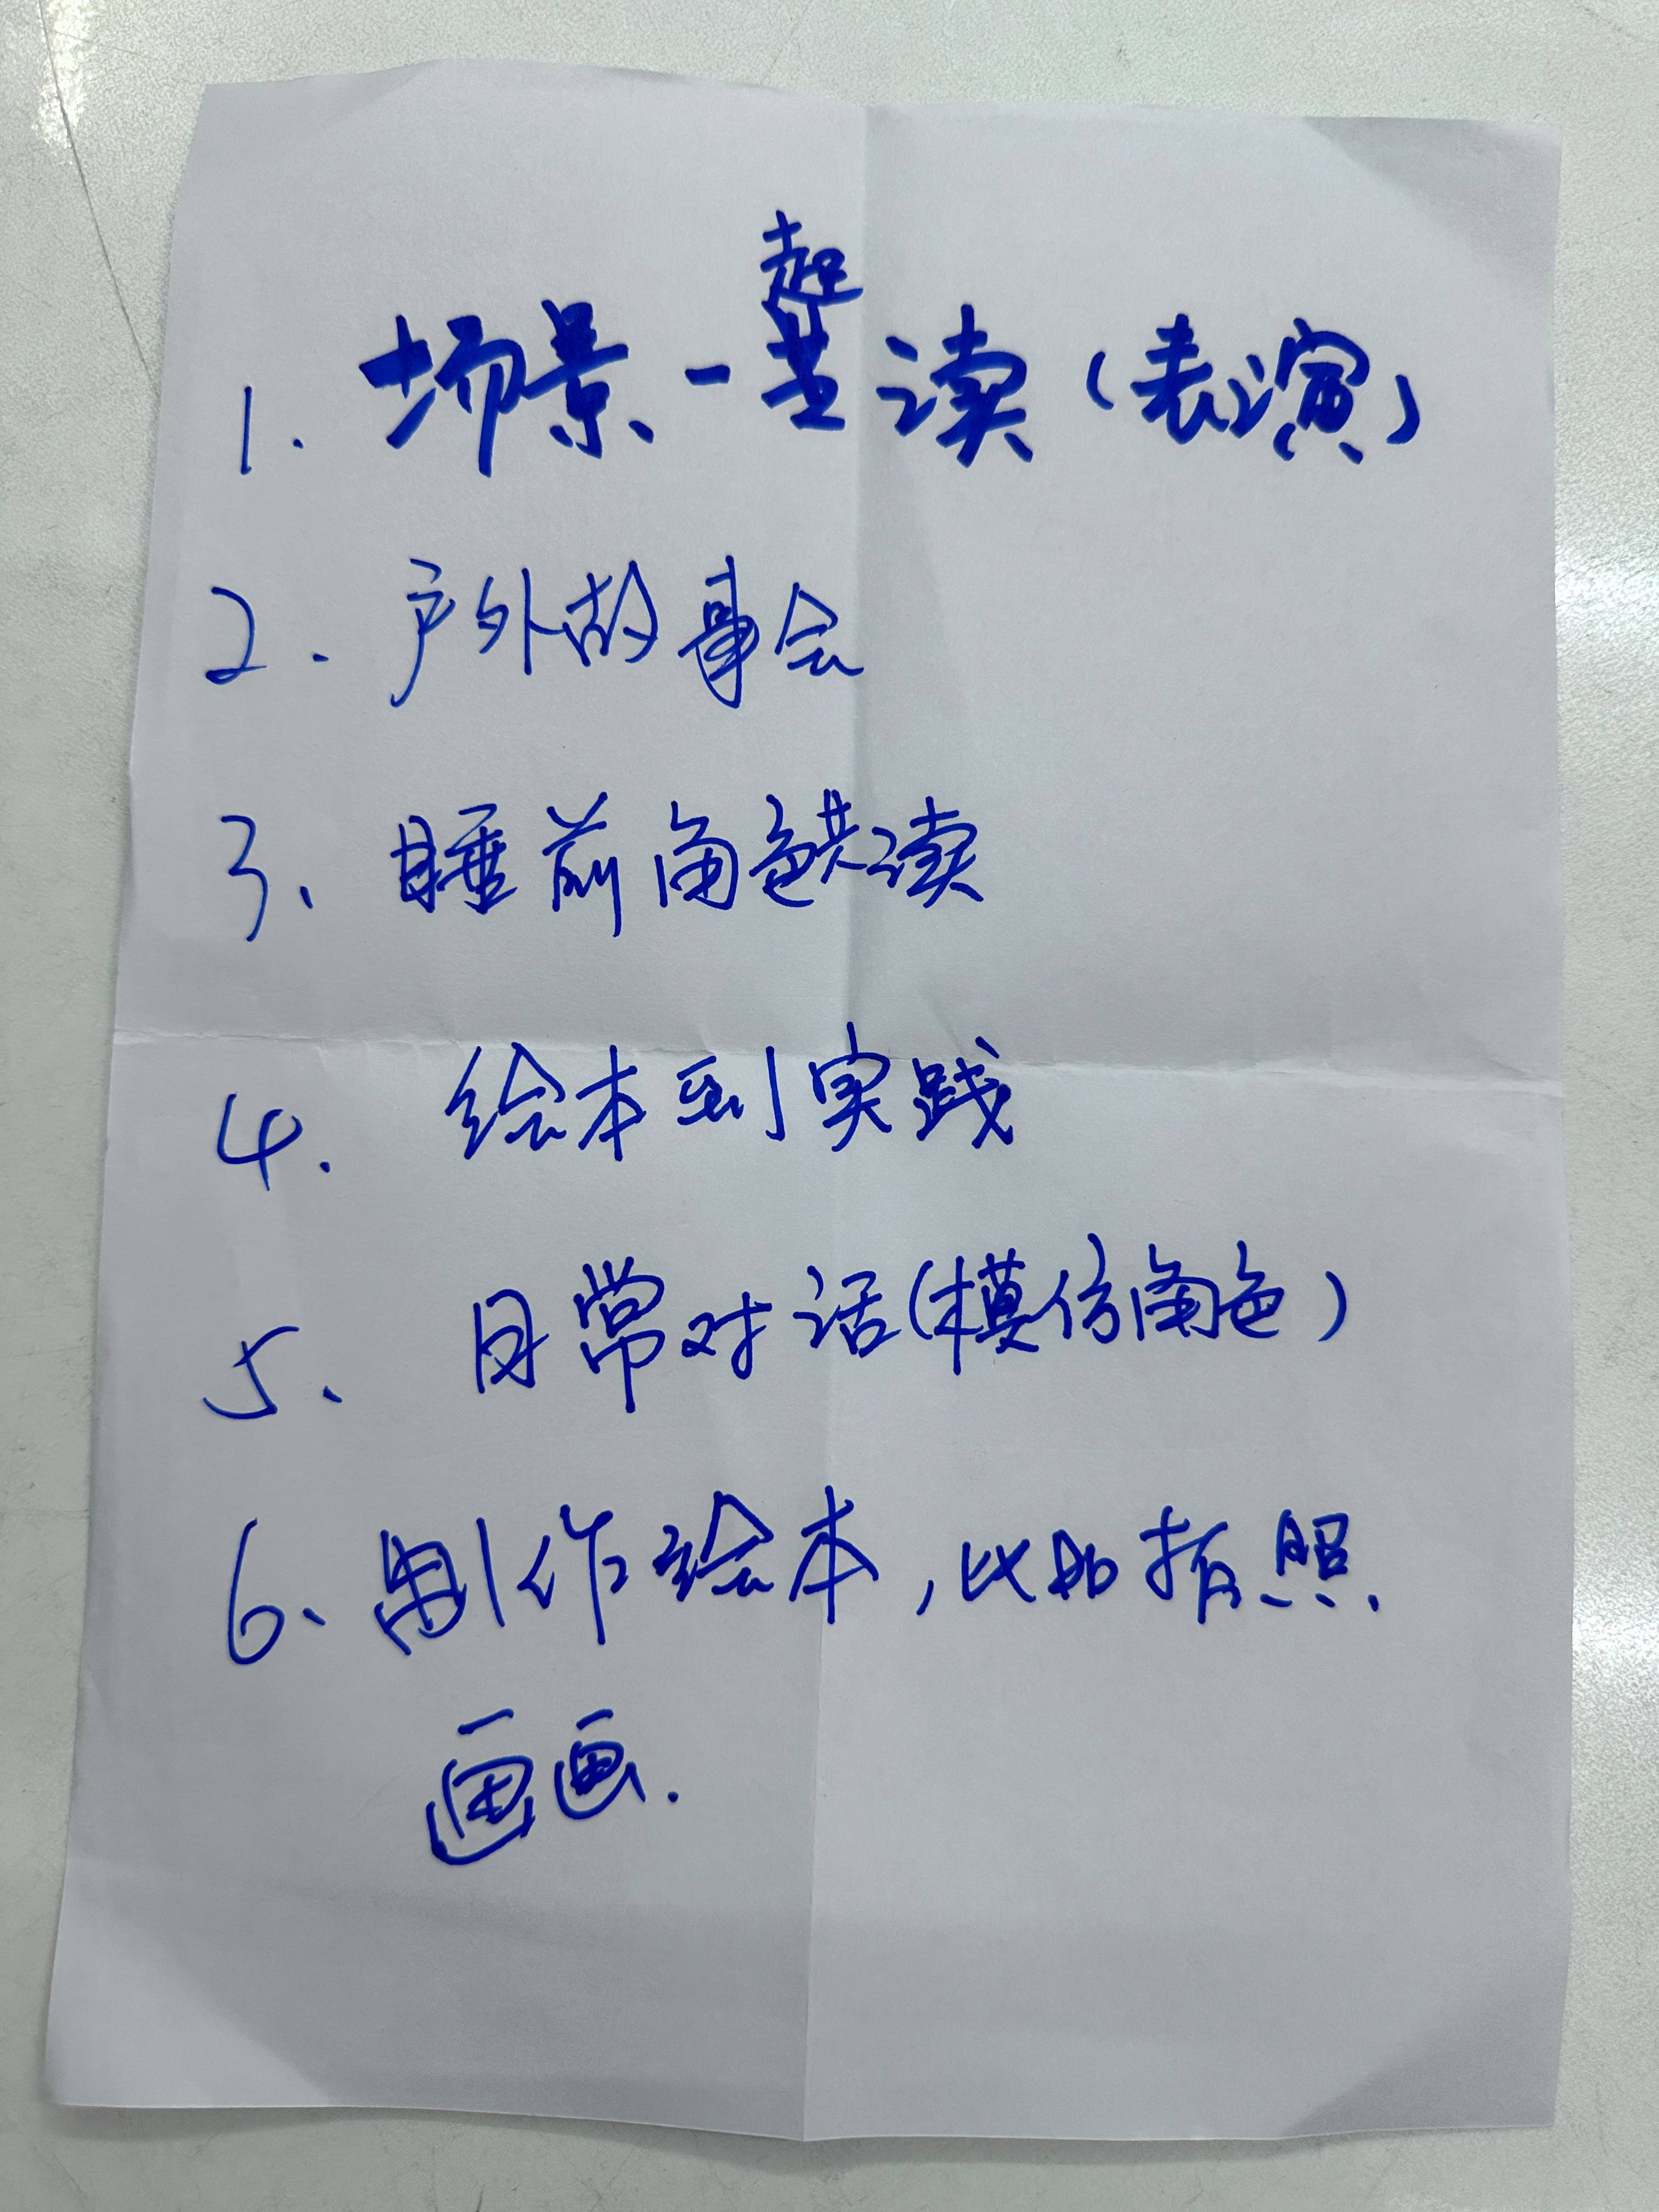 1. 场景一起读（表演）
2. 户外故事会
3、睡前角色共读
4. 绘本到实践
5、日常对话（模仿角色）
6、制作绘本，比如拍照.
画画.